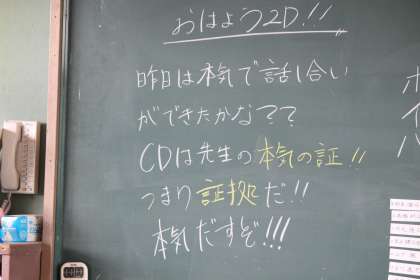 おはよう2D!!
昨日は本気で話し合い
ができたかな??
CDは先生の本気の証!!
つまり証拠だ!!
本気だすぞ!!!